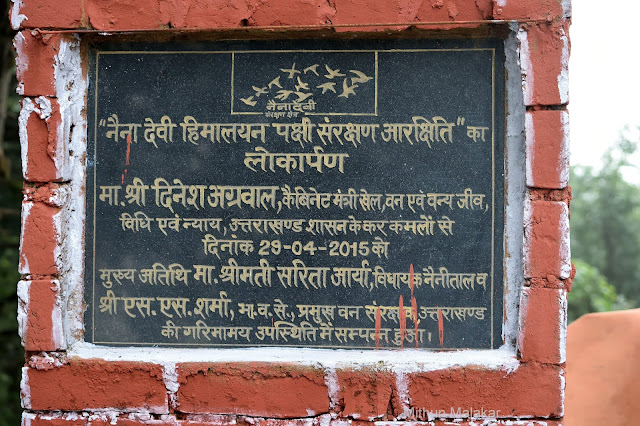 नैना देवी
संरक्षण क्षेत्र
"नैना देवी हिमालयन पक्षी संरक्षण आरक्षिति" का
लोकार्पण
मा. श्री दिनेश अग्रवाल, कैबिनेट मंत्री खेल, वन एवं वन्य जीव,
विधि एवं न्याय, उत्तराखण्ड शासन के कर कमलों से
दिनांक 29-04-2015 को
मुख्य अतिथि मा. श्रीमती सरिता आर्या, विधायक नैनीताल व
श्री एस. एस. शर्मा, भा. व. से., प्रमुख वन संरक्षक, उत्तराखण्ड
की गरिमामय उपस्थिति में सम्पन्न हुआ।
Mithun Malakar